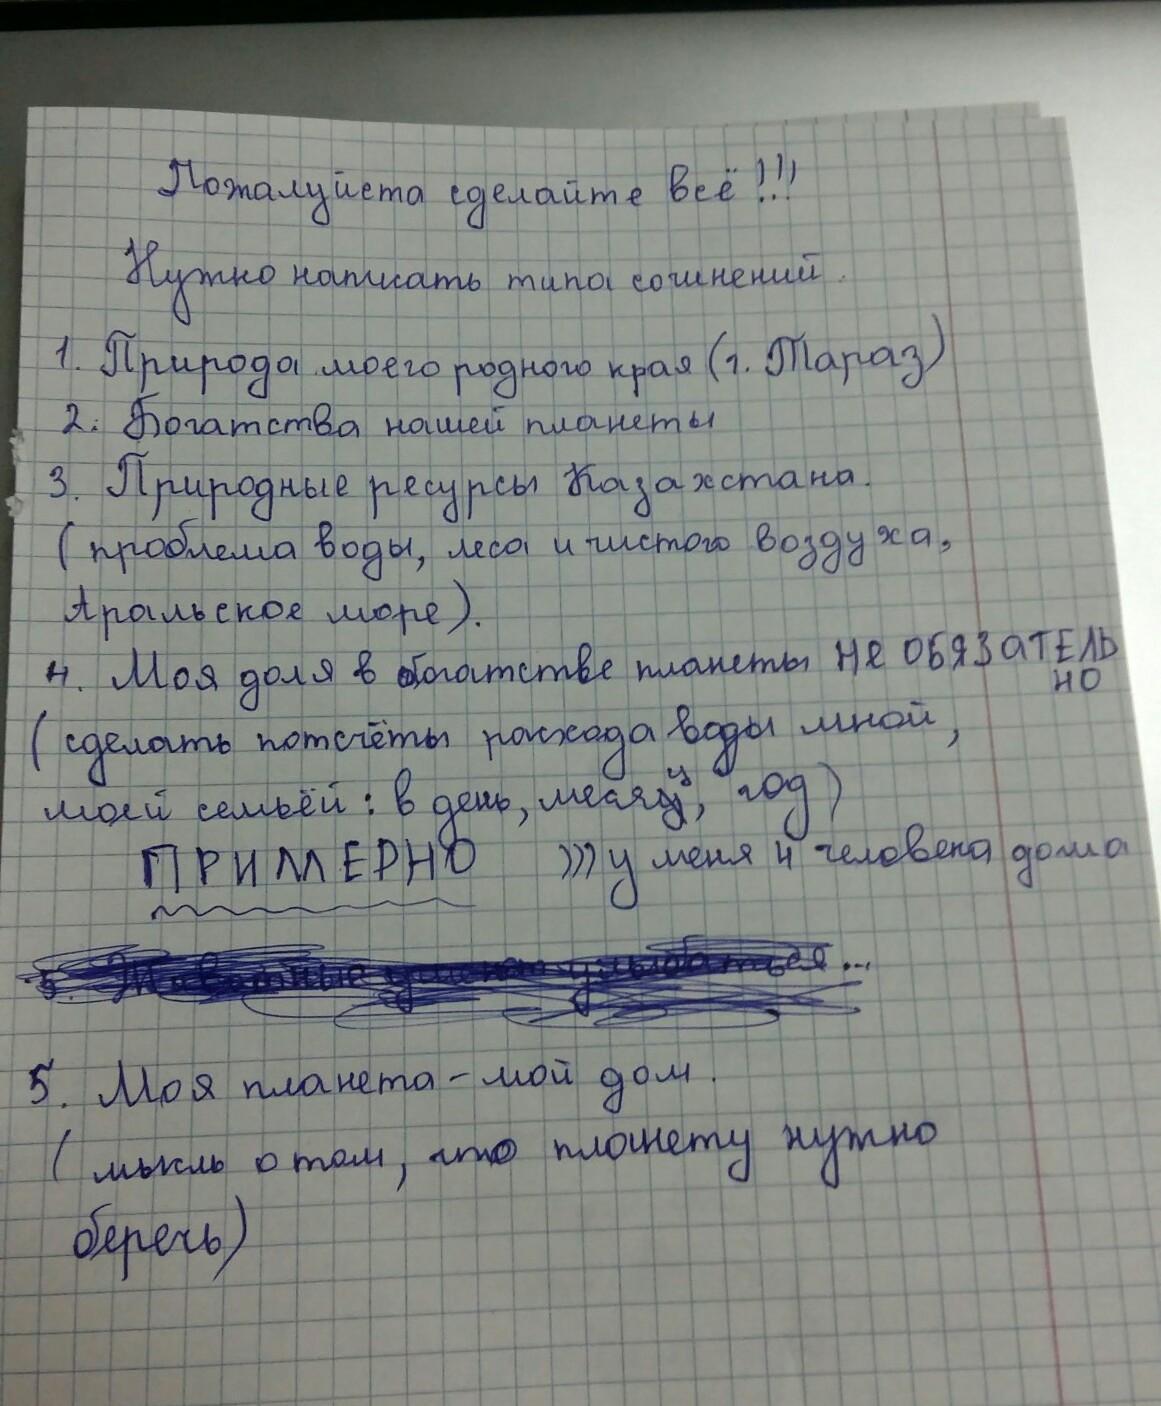 Пожалуйста сделайте всё!!!
Нужно написать типа сочинений.
1. Природа моего родного края (г. Тараз)
2. Богатства нашей планеты
3. Природные ресурсы Казахстана.
(проблема воды, леса и чистого воздуха,
Аральское море).
4. Моя доля в богатстве планеты НЕ ОБЯЗАТЕЛЬ
НО
(сделать потсчёты расхода воды мной,
моей семьёй: в день, месяц, год)
ПРИМЕРНО )))у меня 4 человека дома
5. Животные
5. Моя планета - мой дом.
(мысль о том, что планету нужно
беречь)